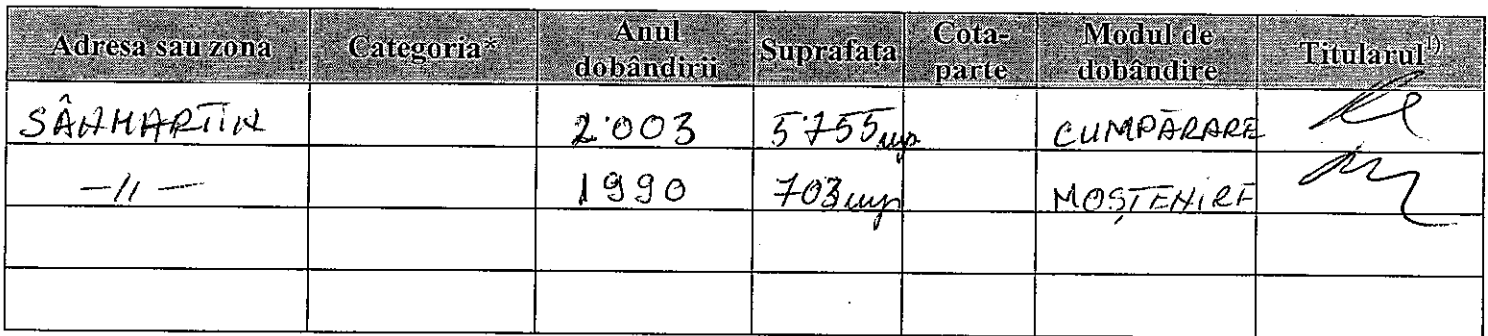 Adresa sau zona Categoria* Anul dobândirii Suprafața Cota-parte Modul de dobândire Titularul¹⁾
SÂNMARTIN 2003 5755 mp CUMPĂRARE
—//— 1990 703 mp MOȘTENIRE